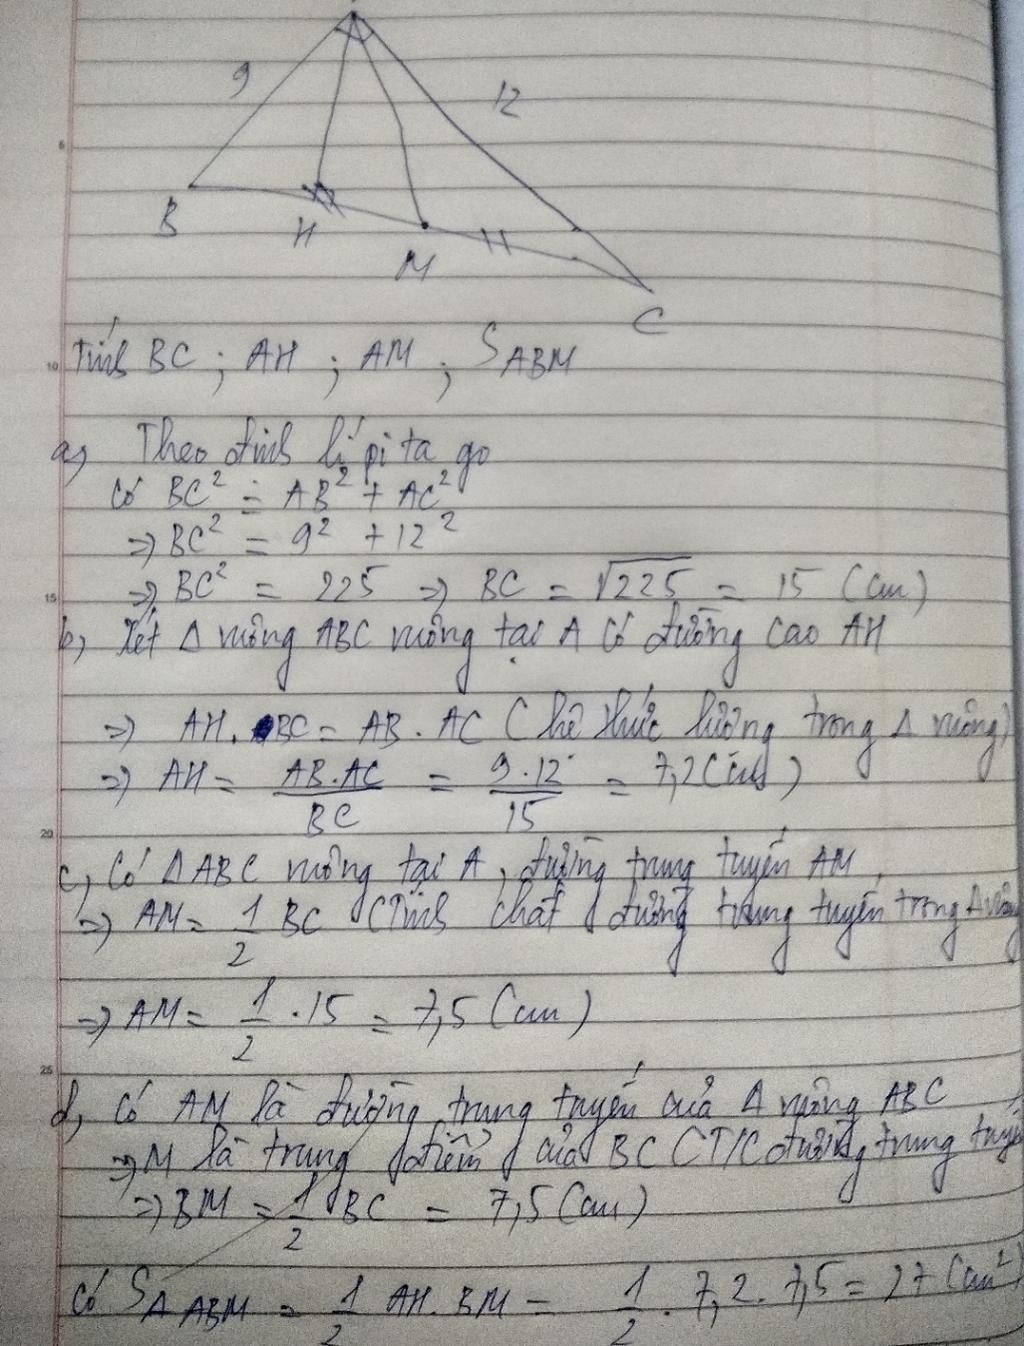 9
12
B
H
M
C
Tính BC ; AH ; AM ; S ABM
a, Theo định lí pi ta go
Có BC² = AB² + AC²
=> BC² = 9² + 12²
=> BC² = 225 => BC = √225 = 15 (cm)
b, Xét Δ vuông ABC vuông tại A có đường cao AH
=> AH. BC = AB . AC ( hệ thức lượng trong Δ vuông)
=> AH = AB.AC / BC = 9.12 / 15 = 7,2 (cm)
c, Có Δ ABC vuông tại A, đường trung tuyến AM,
=> AM = 1/2 BC (Tính chất đường trung tuyến trong Δ vuông
=> AM = 1/2 . 15 = 7,5 (cm)
d, Có AM là đường trung tuyến của Δ vuông ABC
=> M là trung điểm của BC (T/C đường trung tuyến
=> BM = 1/2 BC = 7,5 (cm)
Có S Δ ABM = 1/2 AH. BM = 1/2 . 7,2 . 7,5 = 27 (cm²)
5
10
15
20
25